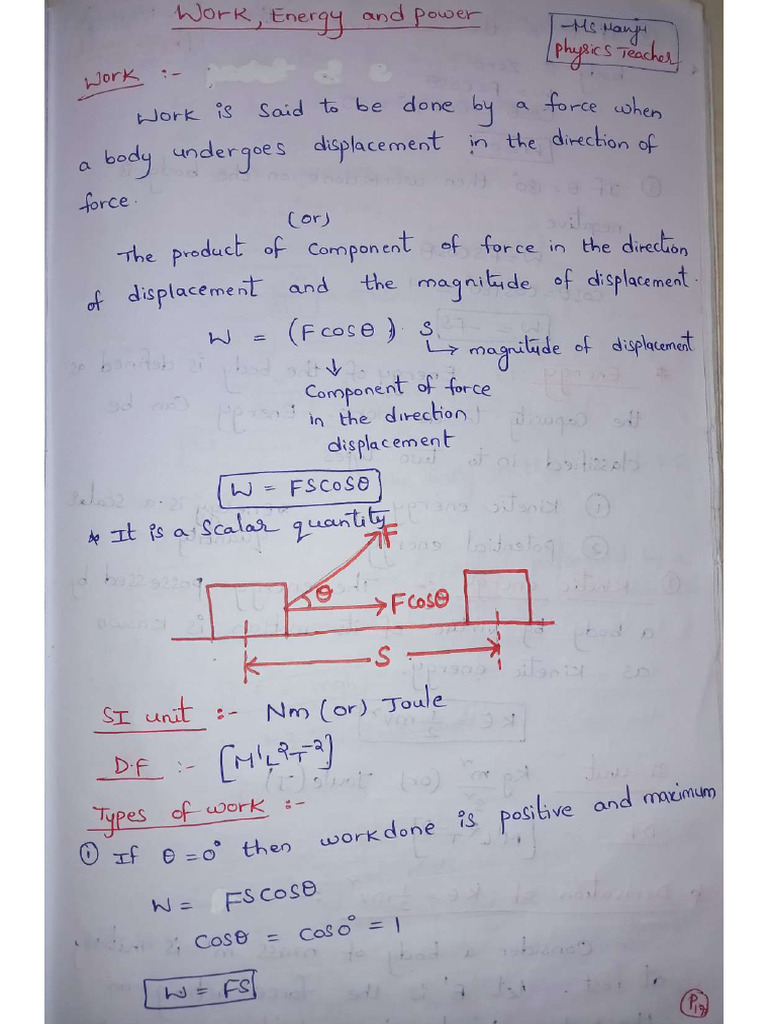 Work, Energy and power
-Ms Manju
Physics Teacher
Work :-
Work is said to be done by a force when
a body undergoes displacement in the direction of
force.
(or)
The product of component of force in the direction
of displacement and the magnitude of displacement.
W = (F cosθ). S
↳ magnitude of displacement
↓
Component of force
in the direction
displacement
W = FS COSθ
* It is a scalar quantity
F
θ
F cosθ
S
SI unit :- Nm (or) Joule
D.F :- [M¹L²T⁻²]
Types of work :-
① If θ = 0° then workdone is positive and maximum
W = FS COSθ
COSθ = COS0° = 1
W = FS